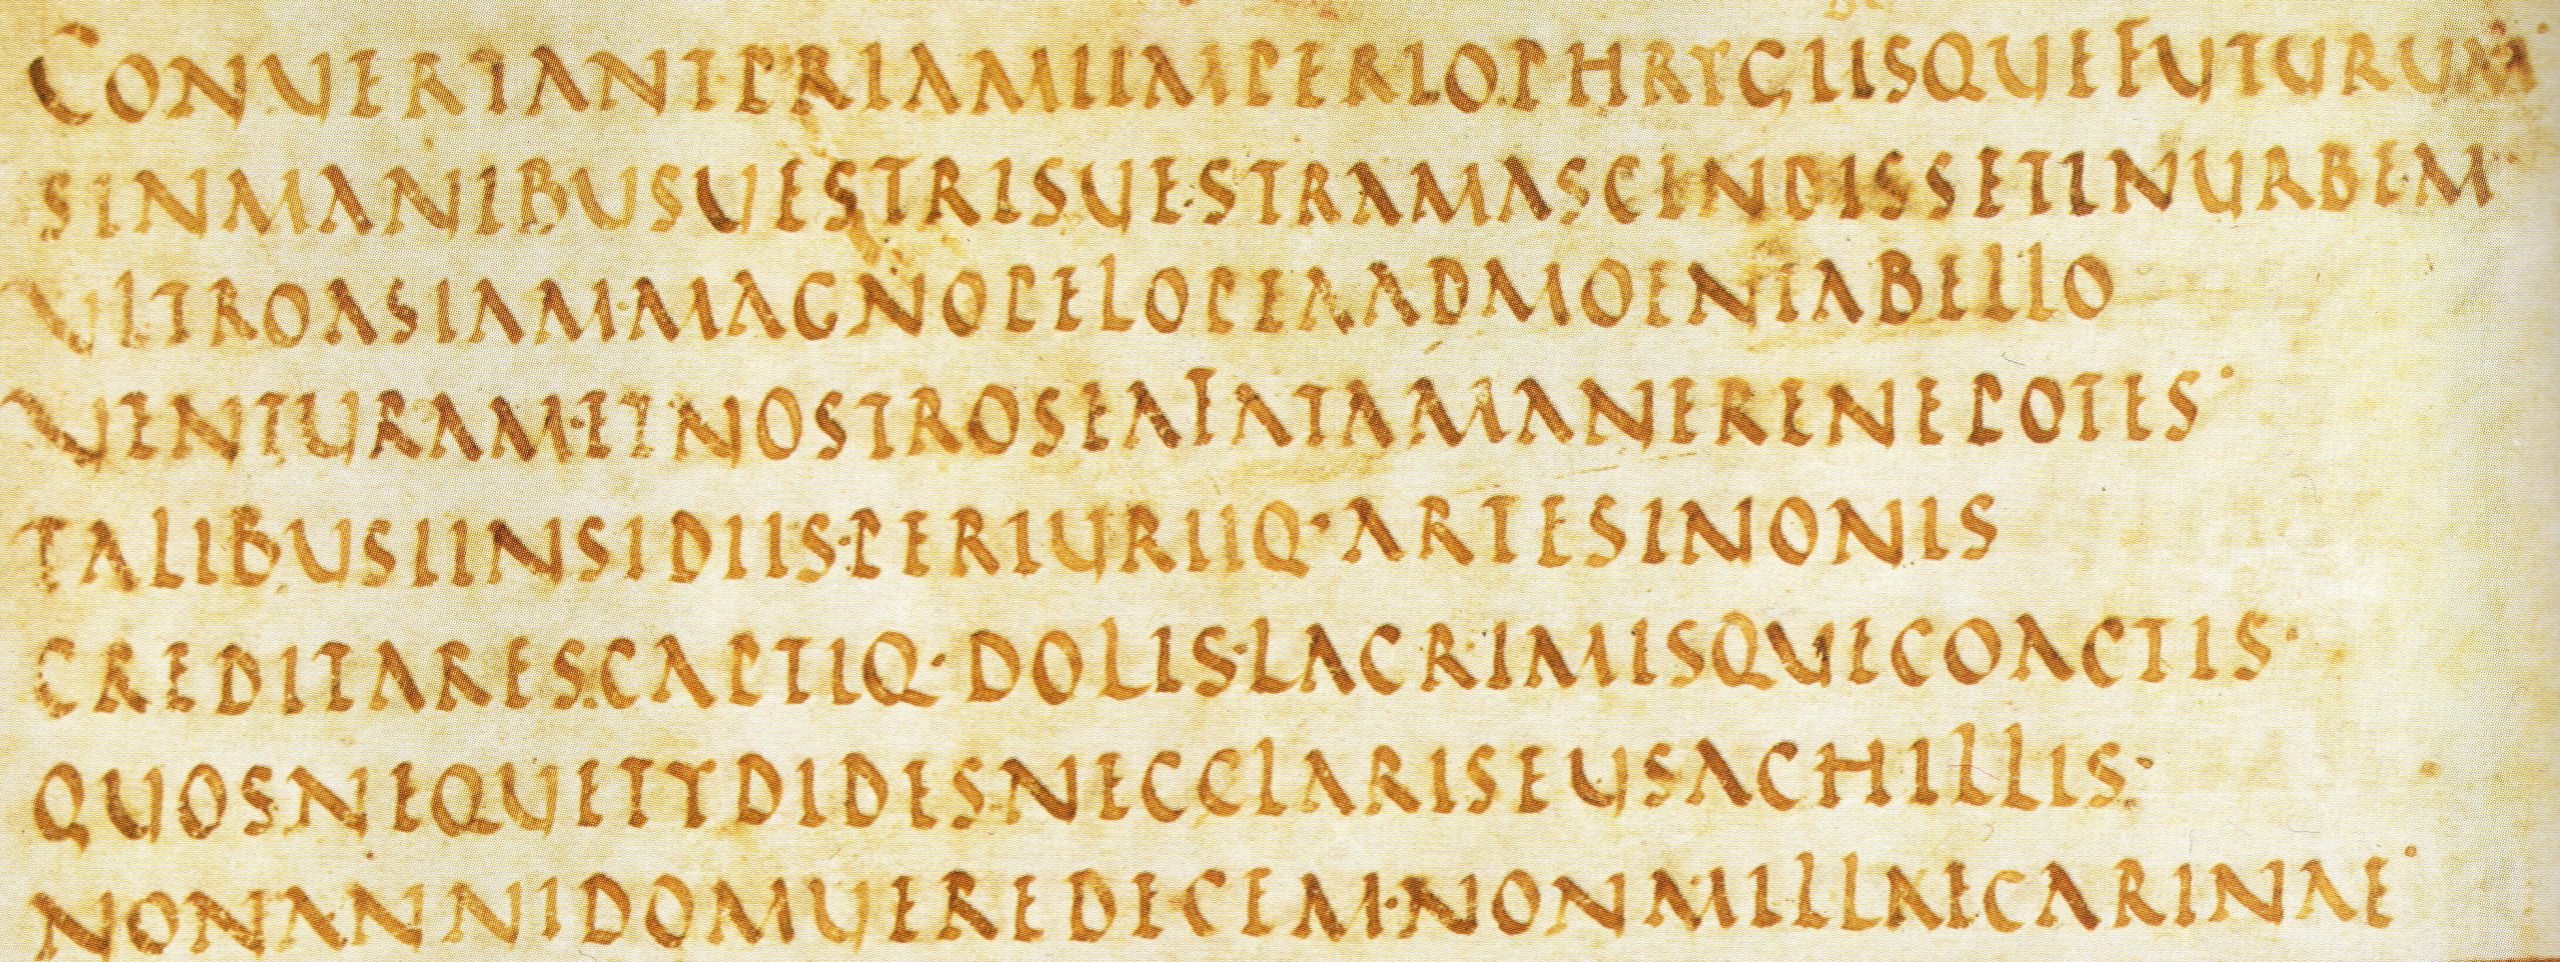 CONUERTANTPRIAMIIAMPERIOPHRYGIISQUEFUTURUM
SINMANIBUSUESTRISUESTRAMASCENDISSETINURBEM
ULTROASIAM·MAGNOPELOPEAADMOENIABELLO
UENTURAM·ETNOSTROSEAFATAMANERENEPOTES·
TALIBUSIINSIDIIS·PERIURIIQ·ARTESINONIS
CREDITARES·CAPTIQ·DOLIS·LACRIMISQUECOACTIS·
QUOSNEQUETYDIDES·NECCLARISEUSACHILLIS·
NONANNIDOMUEREDECEM·NONMILLAECARINAE·